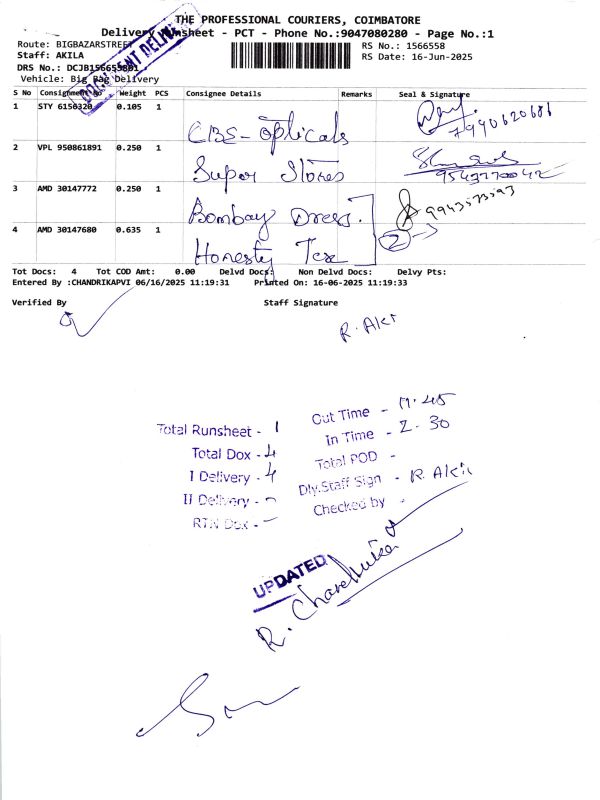 THE PROFESSIONAL COURIERS, COIMBATORE
Delivery Runsheet - PCT - Phone No.:9047080280 - Page No.:1
Route: BIGBAZARSTREET
Staff: AKILA
DRS No.: DCJB156655801
Vehicle: Big Bag Delivery
RS No.: 1566558
RS Date: 16-Jun-2025
DOCUMENT DELIVERY
S No Consignment No Weight PCS Consignee Details Remarks Seal & Signature
1 STY 6156320 0.105 1 CBE-Opticals 7990620686
2 VPL 950861891 0.250 1 Super Stores 9543770042
3 AMD 30147772 0.250 1 Bombay Dress. 9943573593
4 AMD 30147680 0.635 1 Honesty Tex 2
Tot Docs: 4 Tot COD Amt: 0.00 Delvd Docs: Non Delvd Docs: Delvy Pts:
Entered By :CHANDRIKAPVI 06/16/2025 11:19:31 Printed On: 16-06-2025 11:19:33
Verified By Staff Signature
R. Aki
Total Runsheet - 1
Total Dox - 4
I Delivery - 4
II Delivery - -
RTN Dox - -
Out Time - 11.45
In Time - 2.30
Total POD -
Dly.Staff Sign - R. Aki
Checked by -
UPDATED
R. Chandrika